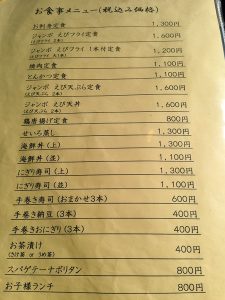 お食事メニュー(税込み価格)
お刺身定食 1,300円
ジャンボ えびフライ定食 1,600円
(えびフライ 2本)
ジャンボ えびフライ 1本付定食 1,200円
(えびフライ 1本)
焼肉定食 1,100円
とんかつ定食 1,100円
ジャンボ えび天ぷら定食 1,600円
(えび天ぷら 2本)
ジャンボ えび天丼 1,600円
(えび天 2本)
鶏唐揚げ定食 800円
せいろ蒸し 1,300円
海鮮丼 (上) 1,300円
海鮮丼 (並) 1,100円
にぎり寿司 (上) 1,300円
にぎり寿司 (並) 1,100円
手巻き寿司 (おまかせ3本) 600円
手巻き納豆 (3本) 400円
手巻きおにぎり (3本) 400円
お茶漬け 400円
(さけ茶 or うめ茶)
スパゲテーナポリタン 800円
お子様ランチ 800円